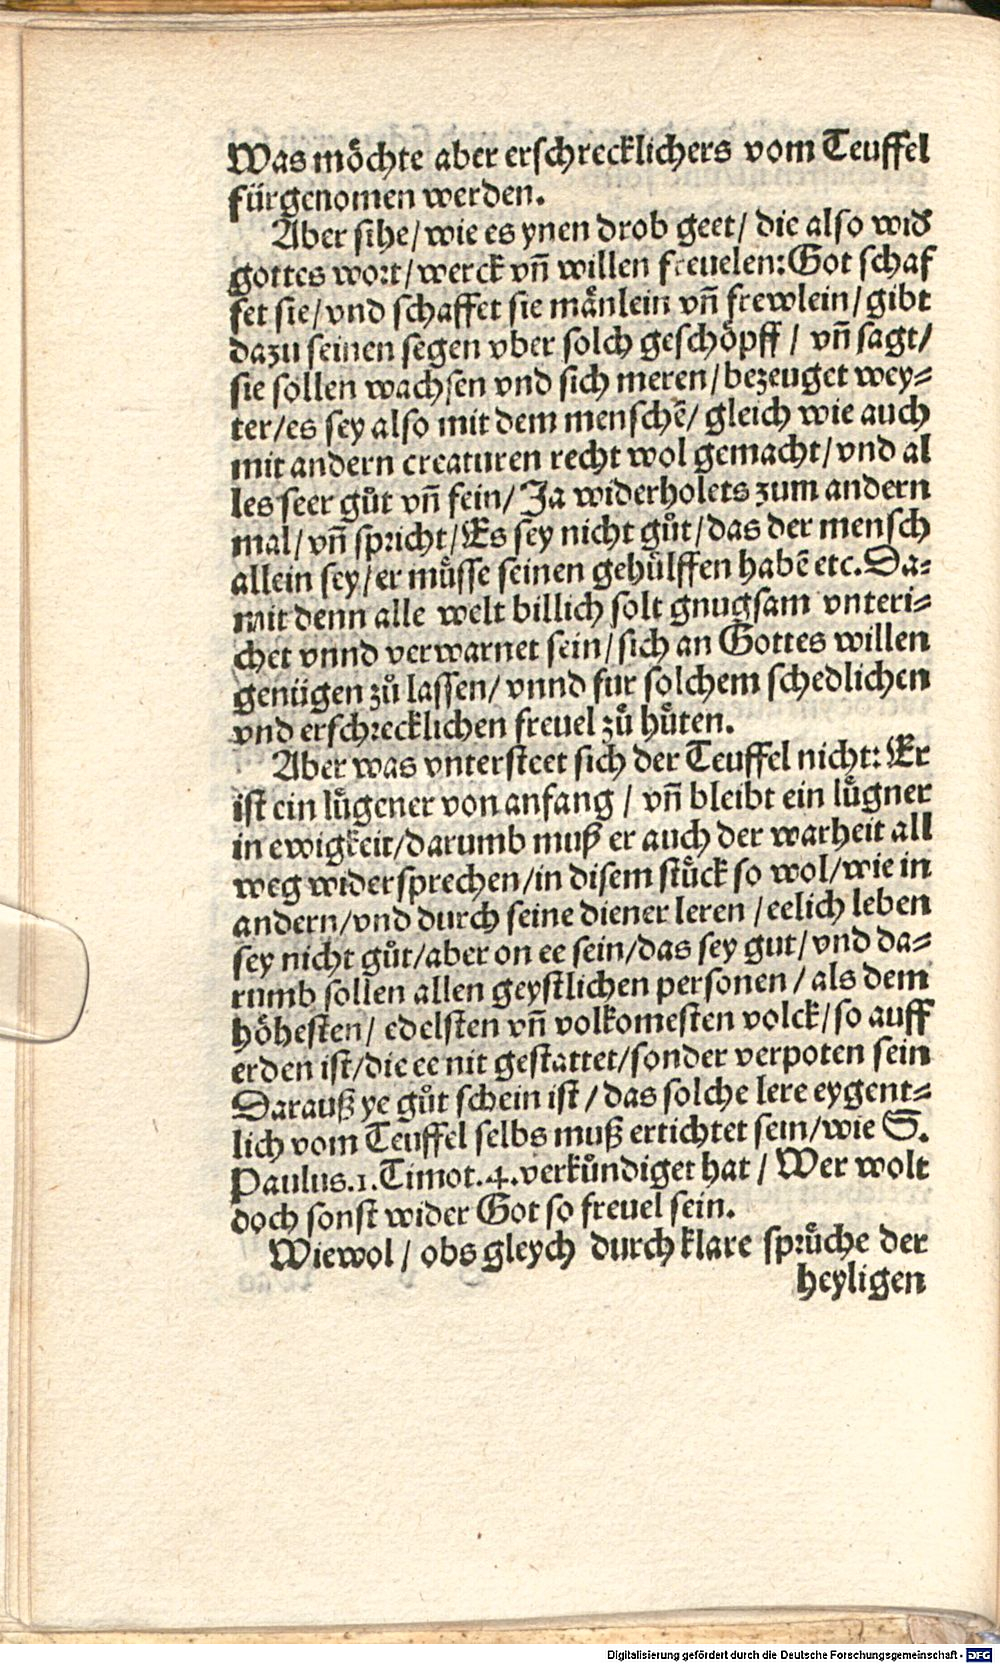 Was möchte aber erschrecklichers vom Teuffel
fürgenomen werden.
Aber sihe/ wie es ynen drob geet/ die also wid
gottes wort/ werck vñ willen freuelen: Got schaf
fet sie/ vnd schaffet sie mänlein vñ frewlein/ gibt
dazu seinen segen vber solch geschöpff/ vñ sagt/
sie sollen wachsen vnd sich meren/ bezeuget wey⸗
ter/ es sey also mit dem menschē/ gleich wie auch
mit andern creaturen recht wol gemacht/ vnd al
les seer gůt vñ fein/ Ja widerholets zum andern
mal/ vñ spricht/ Es sey nicht gůt/ das der mensch
allein sey/ er müsse seinen gehülffen habē etc. Da⸗
mit denn alle welt billich solt gnugsam vnteri⸗
chet vnnd verwarnet sein/ sich an Gottes willen
genügen zů lassen/ vnnd für solchem schedlichen
vnd erschrecklichen freuel zů hüten.
Aber was vntersteet sich der Teuffel nicht: Er
ist ein lügener von anfang/ vñ bleibt ein lügner
in ewigkeit/ darumb muß er auch der warheit all
weg widersprechen/ in disem stück so wol/ wie in
andern/ vnd durch seine diener leren/ eelich leben
sey nicht gůt/ aber on ee sein/ das sey gut/ vnd da⸗
rumb sollen allen geystlichen personen/ als dem
höhesten/ edelsten vñ volkomesten volck/ so auff
erden ist/ die ee nit gestattet/ sonder verpoten sein
Darauß ye gůt schein ist/ das solche lere eygent⸗
lich vom Teuffel selbs muß ertichtet sein/ wie S.
Paulus. 1. Timot. 4. verkündiget hat/ Wer wolt
doch sonst wider Got so freuel sein.
Wiewol/ obs gleych durch klare sprüche der
heyligen
Digitalisierung gefördert durch die Deutsche Forschungsgemeinschaft - DFG